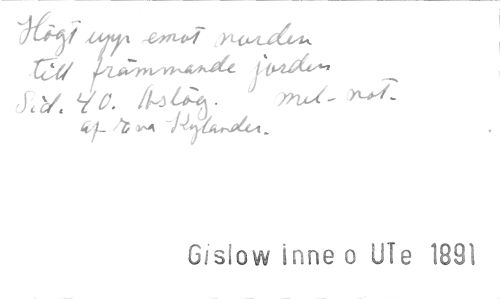 Högt upp emot norden
till främmande jorden
Sid. 40. Aslög. mel-not.
af Eva Kylander.
Gislow Inne o UTe 1891